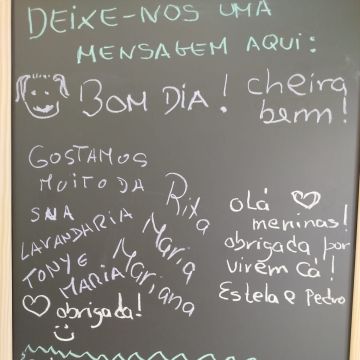 DEIXE-NOS UMA
MENSAGEM AQUI:
BOM DIA!
cheira
bem!
GOSTAMOS
MUITO DA
SUA
LAVANDARIA
TONY E
MARIA
Rita
Maria
Mariana
obrigada!
olá
meninas!
obrigada por
virem cá!
Estela e Pedro